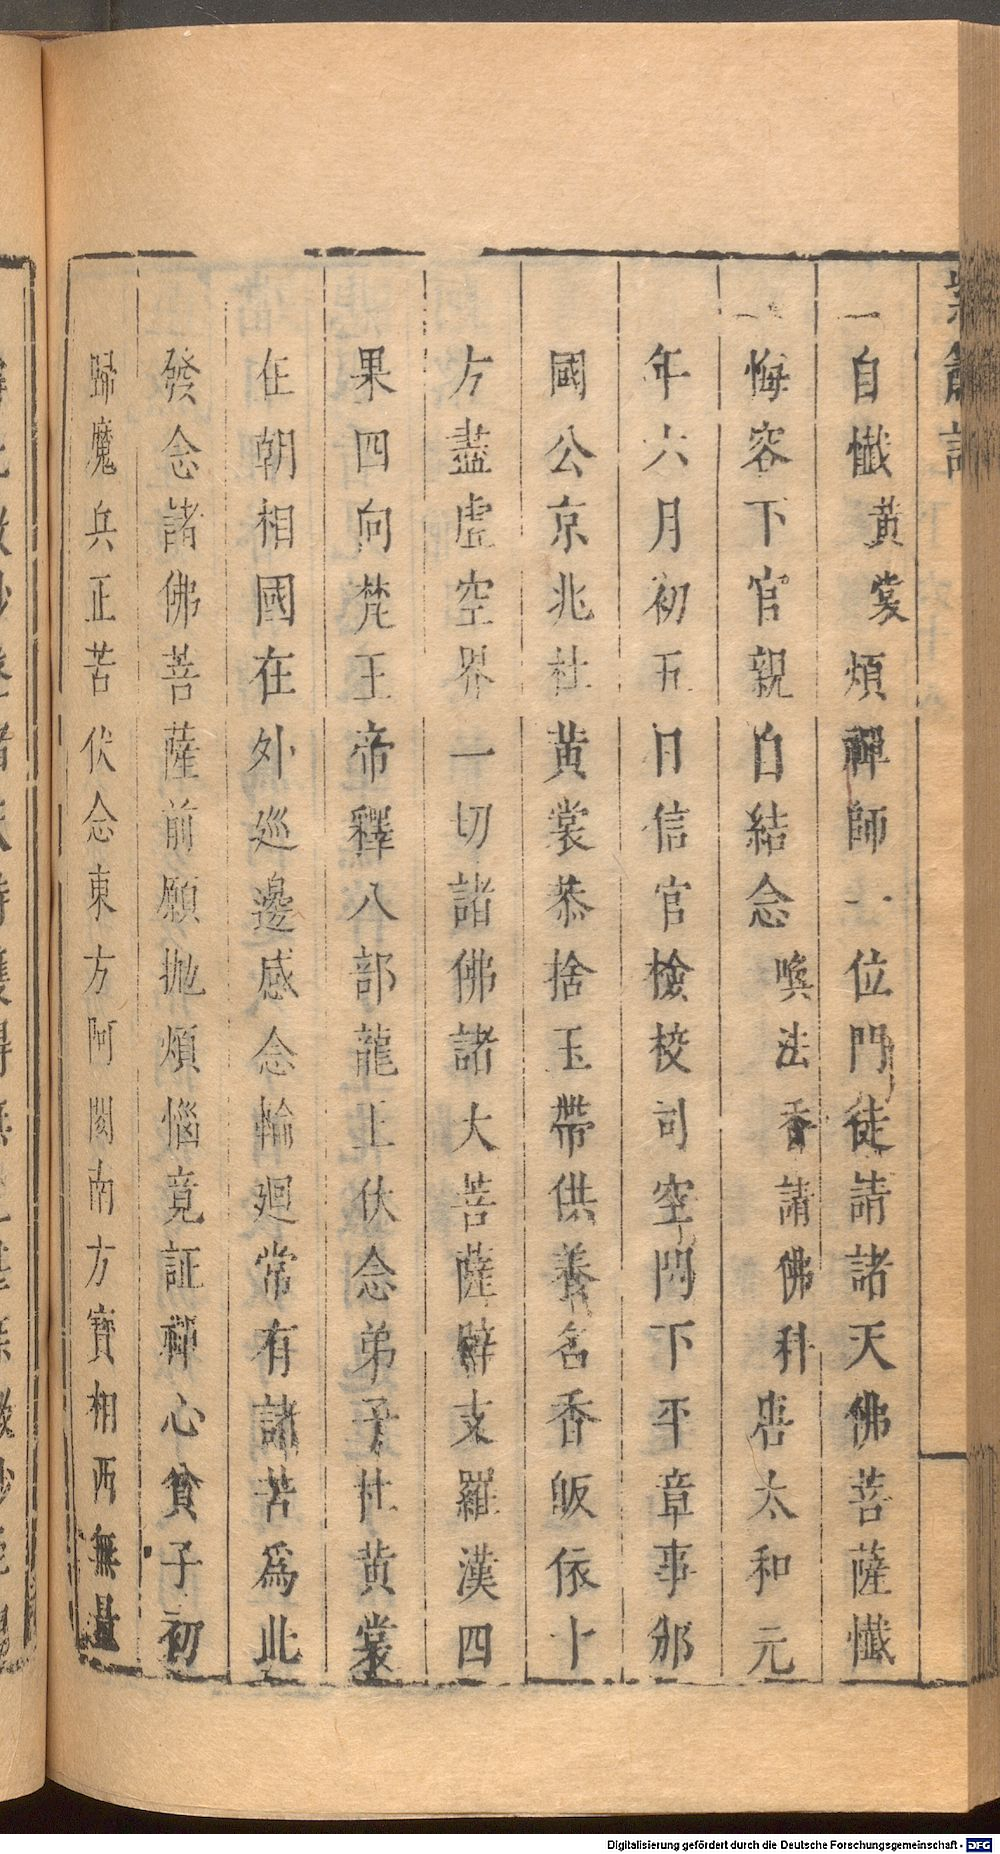 紫簫記
自懺黃裳煩禪師一位門徒請諸天佛菩薩懺
悔容下官親自結念喚法香請佛科居太和元
年六月初五日信官檢校司空門下平章事邠
國公京兆杜黃裳恭捨玉帶供養名香皈依十
方盡虛空界一切諸佛諸大菩薩辟支羅漢四
果四向梵王帝釋八部龍王伏念弟子杜黃裳
在朝相國在外巡邊感念輪廻常有諸苦爲此
發念諸佛菩薩前願拋煩惱竟証禪心貧子初
歸魔兵正苦伏念東方阿閦南方寶相西無量
Digitalisierung gefördert durch die Deutsche Forschungsgemeinschaft - DFG